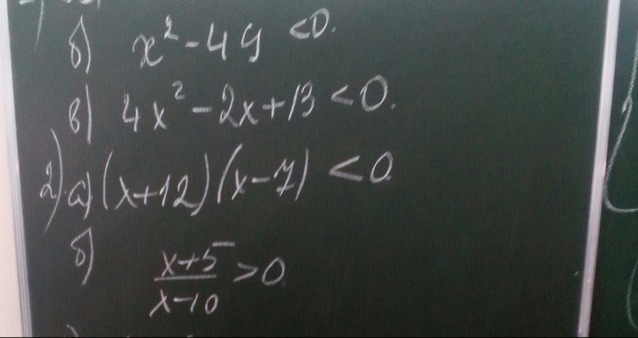 б) x² - 49 < 0.
в) 4x² - 2x + 13 < 0.
2) а) (x+12)(x-7) < 0
б) \frac{x+5}{x-10} > 0